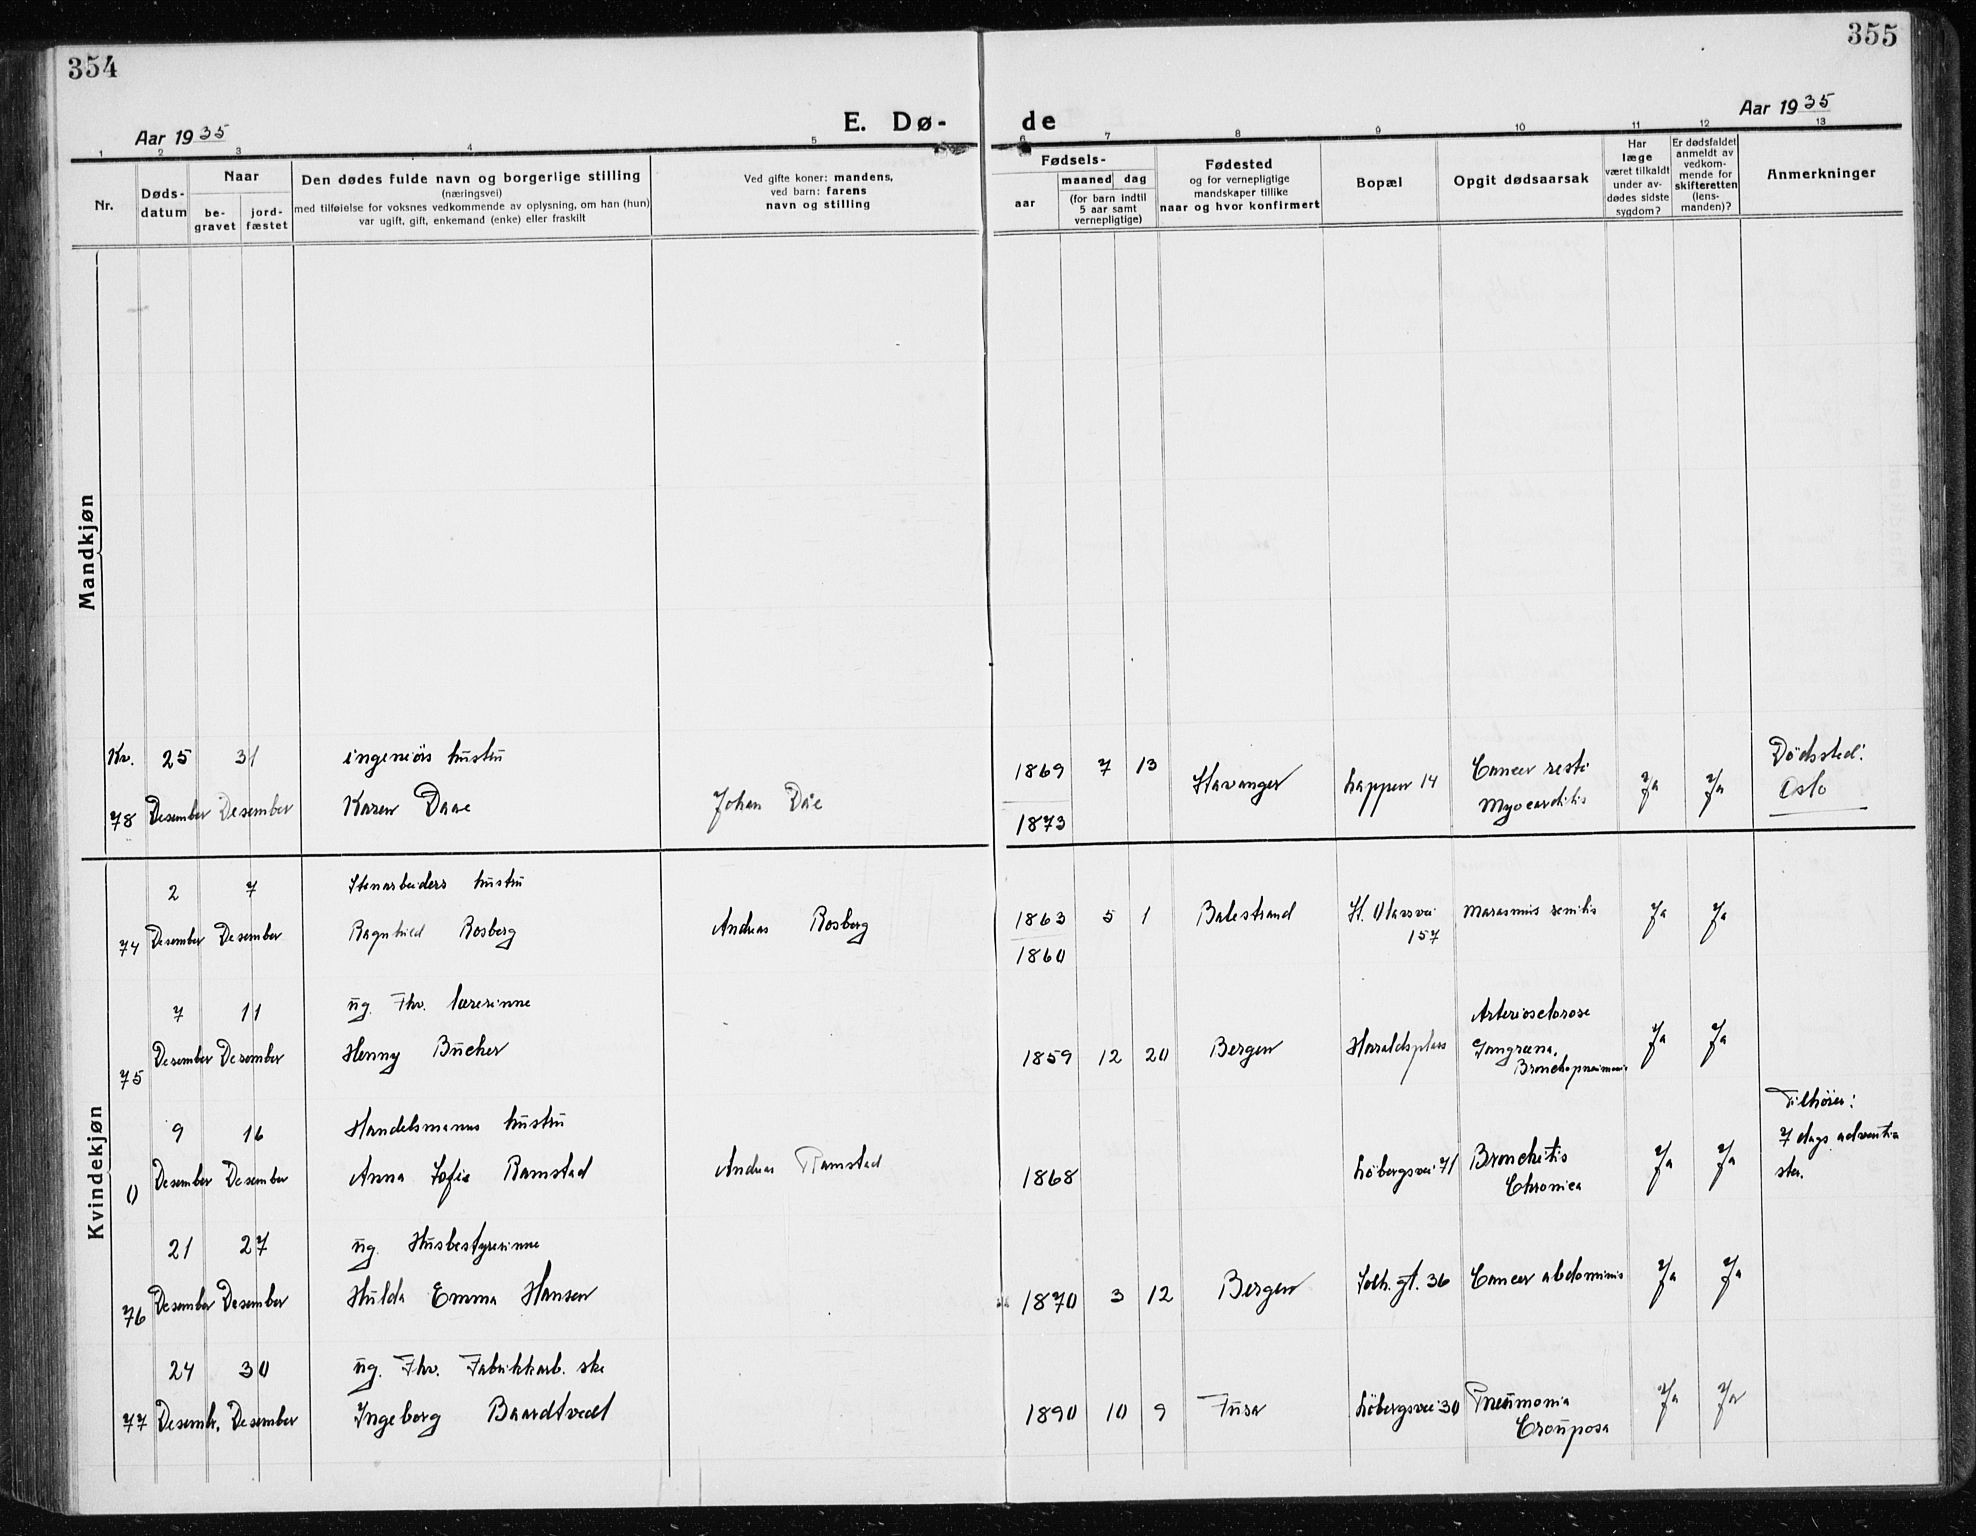 354
355
Aar 1935
E. Dø-
de
Aar 1935
1 2 3 4 5 6 7 8 9 10 11 12 13
Nr.
Døds-
datum
Naar
be-
gravet
jord-
fæstet
Den dødes fulde navn og borgerlige stilling
(næringsvei)
med tilføielse for voksnes vedkommende av oplysning, om han (hun)
var ugift, gift, enkemand (enke) eller fraskilt
Ved gifte koner: mandens,
ved barn: farens
navn og stilling
Fødsels-
aar
maaned dag
(for barn indtil
5 aar samt
vernepligtige)
Fødested
og for vernepligtige
mandskaper tillike
naar og hvor konfirmert
Bopæl
Opgit dødsaarsak
Har
læge
været tilkaldt
under av-
dødes sidste
sygdom?
Er dødsfaldet
anmeldt av
vedkom-
mende for
skifteretten
(lens-
manden)?
Anmerkninger
Mandkjøn
Kv. 25 31 ingeniörs hustru 1869 7 13 Stavanger Lappen 14 Cancer recti Ja Ja Dödssted:
78 Desember Desember Karen Daae Johan Dåe 1873 Myocarditis Oslo
Kvindekjøn
2 7 Stenarbeiders hustru
74 Desember Desember Ragnhild Rosberg Andreas Rosberg 1863 5 1 Balestrand St. Olavsvei Marasmus senilis Ja Ja
1860 157
7 11 ug. Fhv. lærerinne Arteriosclerose
75 Desember Desember Henny Bücher 1859 12 20 Bergen Haraldsplass Gangræna, Ja Ja
Bronchopneumoni
9 16 Handelsmanns hustru Tilhörer:
0 Desember Desember Anna Sofie Ramstad Andreas Ramstad 1868 Löbergsvei 71 Bronchitis Ja Ja 7 dags adventi-
Chronica ster.
21 27 ug. Husbestyrerinne
76 Desember Desember Hulda Emma Hansen 1870 3 12 Bergen Solh. gt. 36 Cancer abdominis Ja Ja
24 30 ug. Fhv. Fabrikkarb. ske
77 Desembr. Desember Ingeborg Baardtvedt 1890 10 9 Fusa Löbergsvei 30 Pneumonia Ja Ja
Crouposa